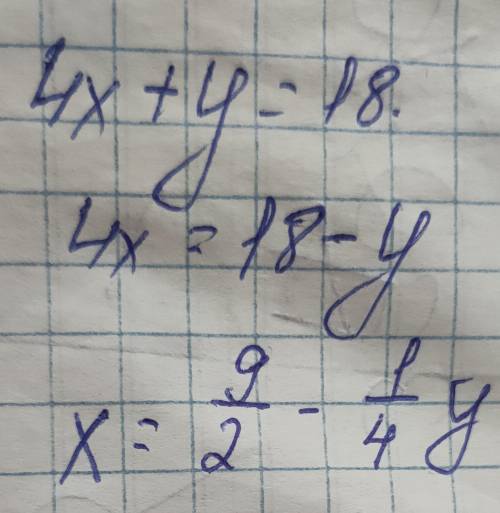 4x + y = 18.
4x = 18 - y
x = 9/2 - 1/4 y